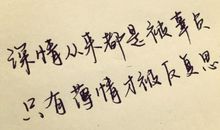 深情从来都是被辜负
只有薄情才被反复思